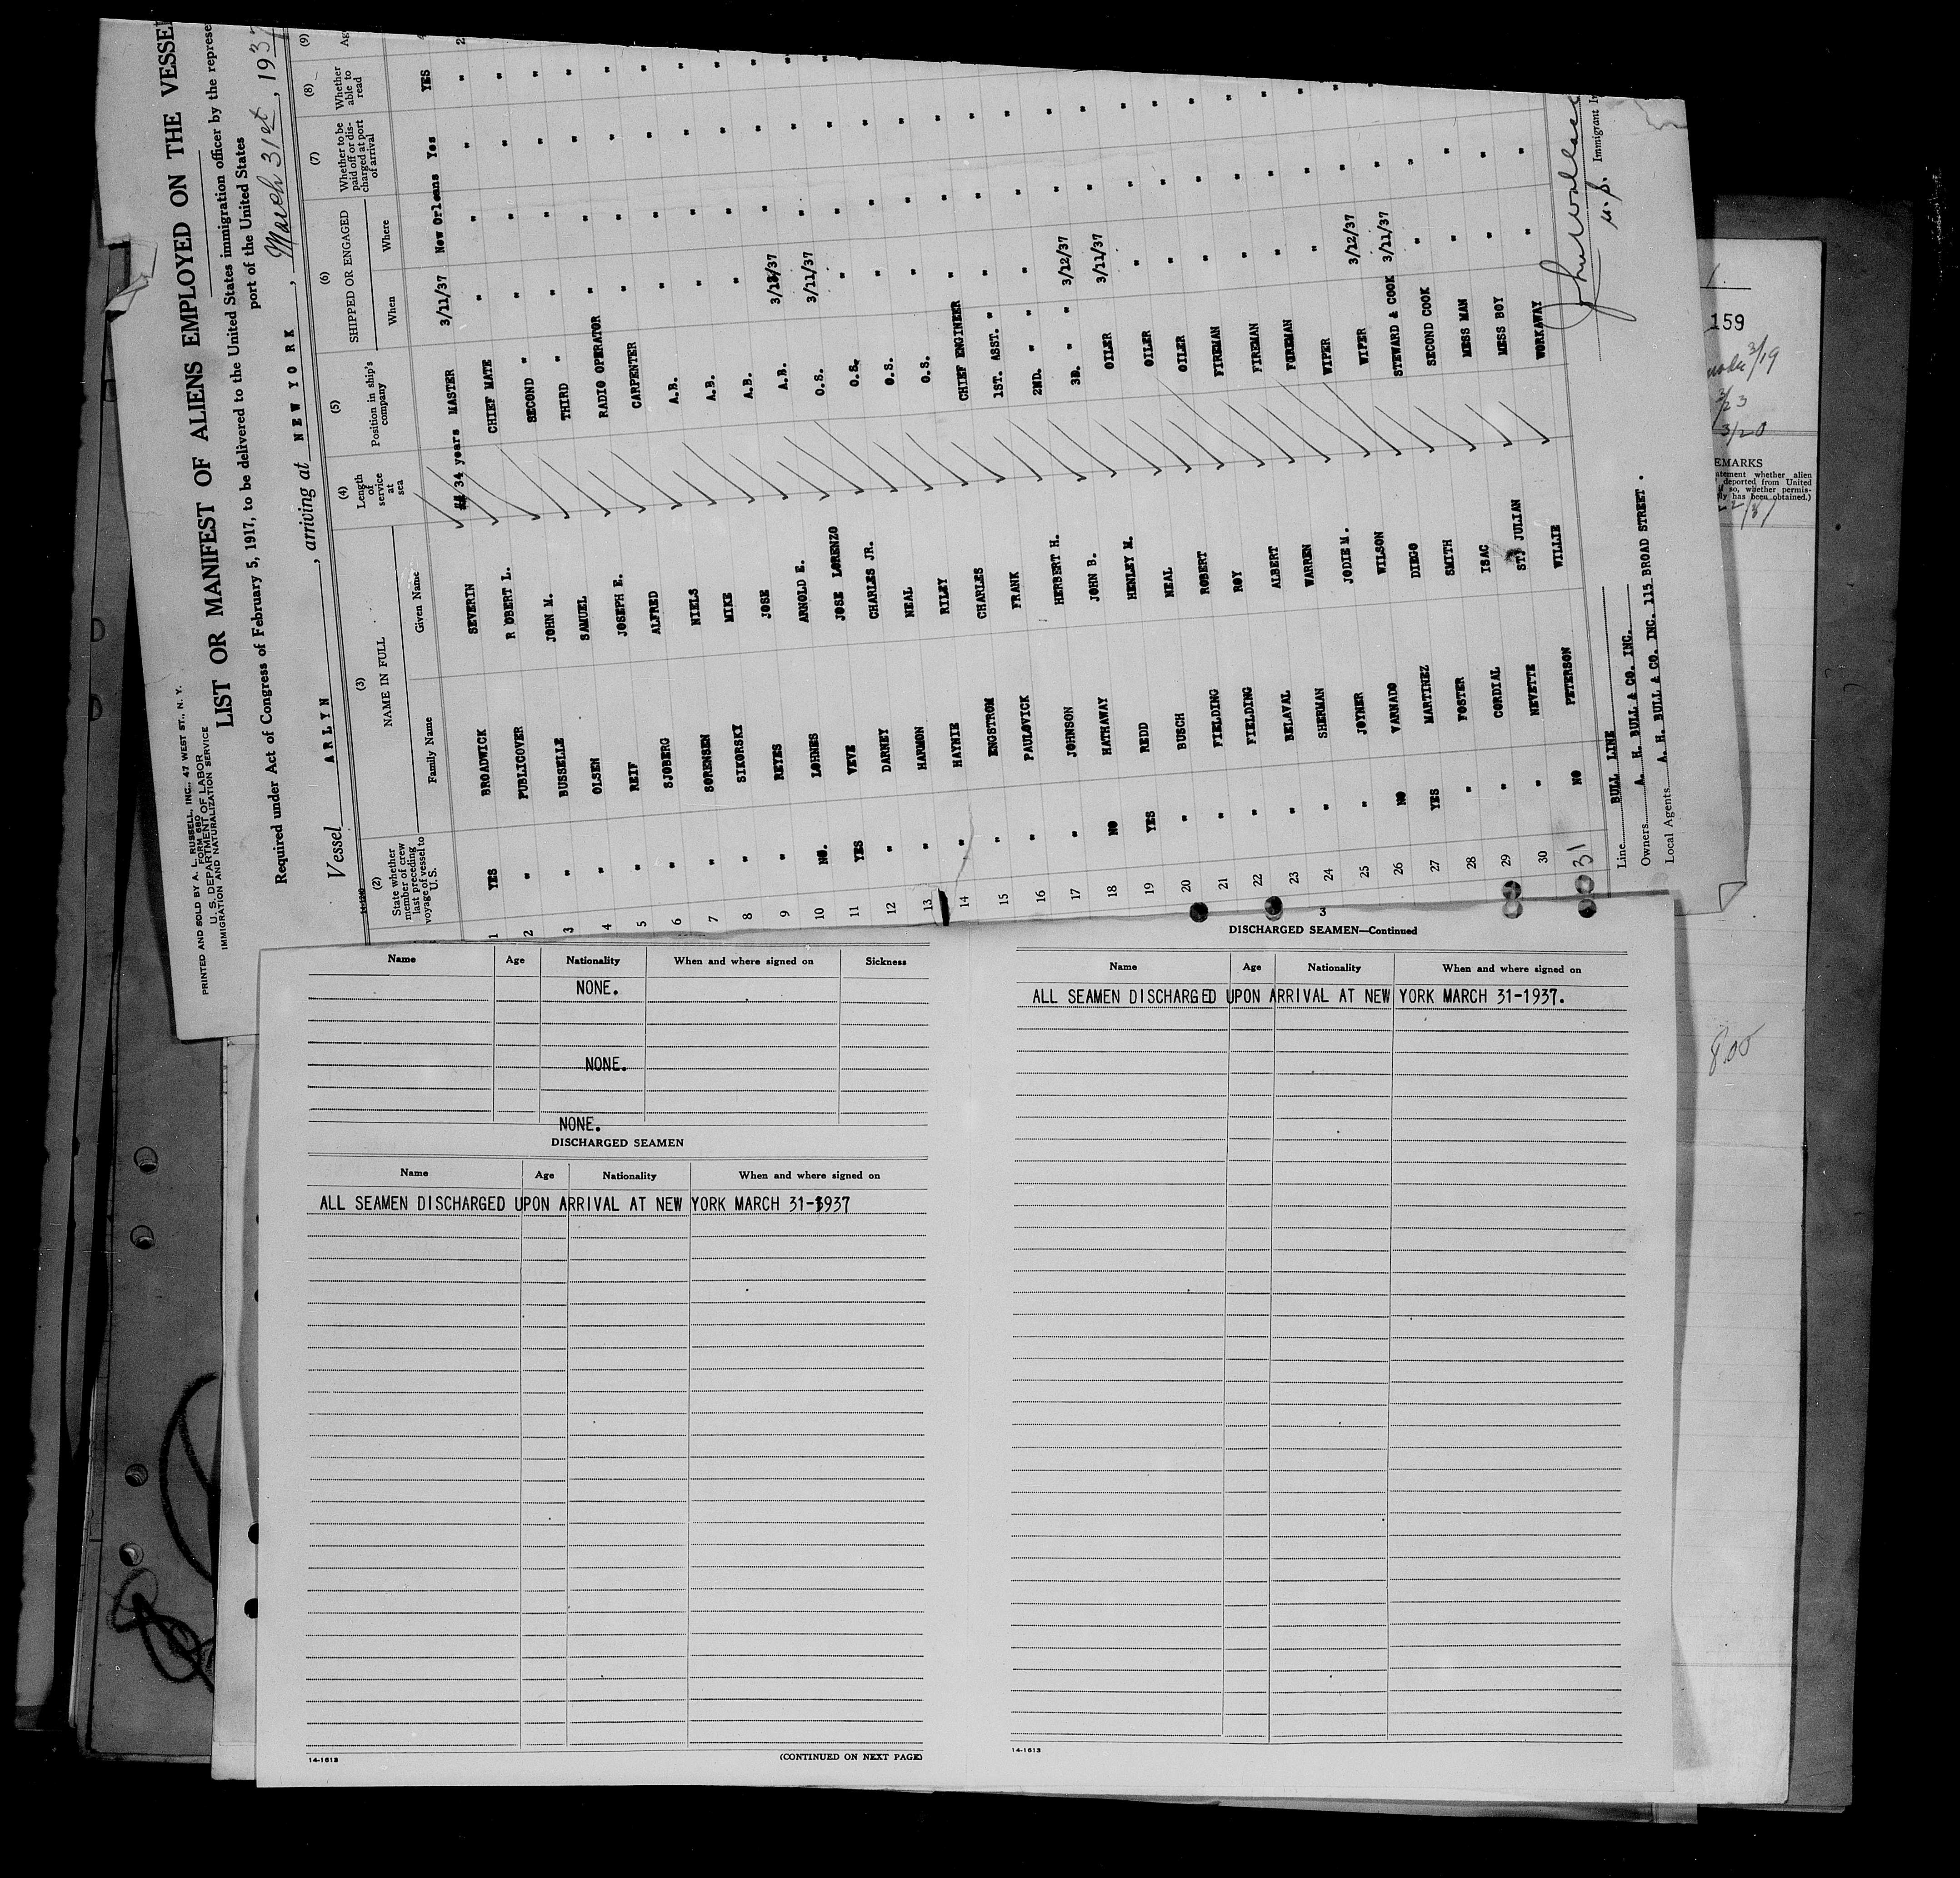 PRINTED AND SOLD BY A. L. RUSSELL, INC., 47 WEST ST., N. Y.
FORM 680
U. S. DEPARTMENT OF LABOR
IMMIGRATION AND NATURALIZATION SERVICE
LIST OR MANIFEST OF ALIENS EMPLOYED ON THE VESSEL
Required under Act of Congress of February 5, 1917, to be delivered to the United States immigration officer by the represe
port of the United States
Vessel ARLYN, arriving at NEW YORK, March 31st, 1937
14-1240
(2) State whether member of crew last preceding voyage of vessel to U. S.
(3) NAME IN FULL
Family Name Given Name
(4) Length of service at sea
(5) Position in ship's company
(6) SHIPPED OR ENGAGED
When Where
(7) Whether to be paid off or discharged at port of arrival
(8) Whether able to read
(9) Ag
1 YES BROADWICK SEVERIN 34 years MASTER 3/11/37 New Orleans Yes YES
2 " PUBLICOVER R OBERT L. CHIEF MATE " " " "
3 " BUSSELLE JOHN M. SECOND " " " " "
4 " OLSEN SAMUEL THIRD " " " " "
5 " REIF JOSEPH E. RADIO OPERATOR " " " "
6 " SJOBERG ALFRED CARPENTER " " " "
7 " SORENSEN NIELS A.B. " " " "
8 " SIKORSKY MIKE A.B. " " " "
9 " REYES JOSE A.B. " " " "
10 NO. LOHNES ARNOLD E. A.B. 3/12/37 " " "
11 YES VEVE JOSE LORENZO O.S. 3/11/37 " " "
12 " DARNEY CHARLES JR. O.S. " " " "
13 " HARMON NEAL O.S. " " " "
14 " HAYNIE RILEY O.S. " " " "
15 " ENGSTROM CHARLES CHIEF ENGINEER " " " "
16 " PAULOVICK FRANK 1ST. ASST. " " " " "
17 " JOHNSON HERBERT H. 2ND. " " " " " "
18 NO HATHAWAY JOHN B. 3D. " " 3/12/37 " " "
19 YES REDD HENLEY M. OILER 3/11/37 " " "
20 " BUSCH NEAL OILER " " " "
21 " FIELDING ROBERT OILER " " " "
22 " FIELDING ROY FIREMAN " " " "
23 " BELAVAL ALBERT FIREMAN " " " "
24 " SHERMAN WARREN FOREMAN " " " "
25 " JOYNER JODIE M. WIPER " " " "
26 NO VARNADO WILSON WIPER 3/12/37 " "
27 YES MARTINEZ DIEGO STEWARD & COOK 3/11/37 " "
28 " FOSTER SMITH SECOND COOK " "
29 " CORDIAL ISAC MESS MAN " "
30 " NEVETTE ST. JULIAN MESS BOY " "
31 NO PETERSON WILLIE WORKAWAY " "
Line BULL LINE
Owners A. H. BULL & CO. INC.
Local Agents A. H. BULL & CO. INC. 115 BROAD STREET.
John Wallace
U. S. Immigrant In
159
3/19
3/23
3/20
EMARKS
atement whether alien
deported from United
so, whether permis-
ly has been obtained.)
800
Name Age Nationality When and where signed on Sickness
NONE.
NONE.
NONE.
DISCHARGED SEAMEN
Name Age Nationality When and where signed on
ALL SEAMEN DISCHARGED UPON ARRIVAL AT NEW YORK MARCH 31-1937
14-1613
(CONTINUED ON NEXT PAGE)
3
DISCHARGED SEAMEN—Continued
Name Age Nationality When and where signed on
ALL SEAMEN DISCHARGED UPON ARRIVAL AT NEW YORK MARCH 31-1937.
14-1613